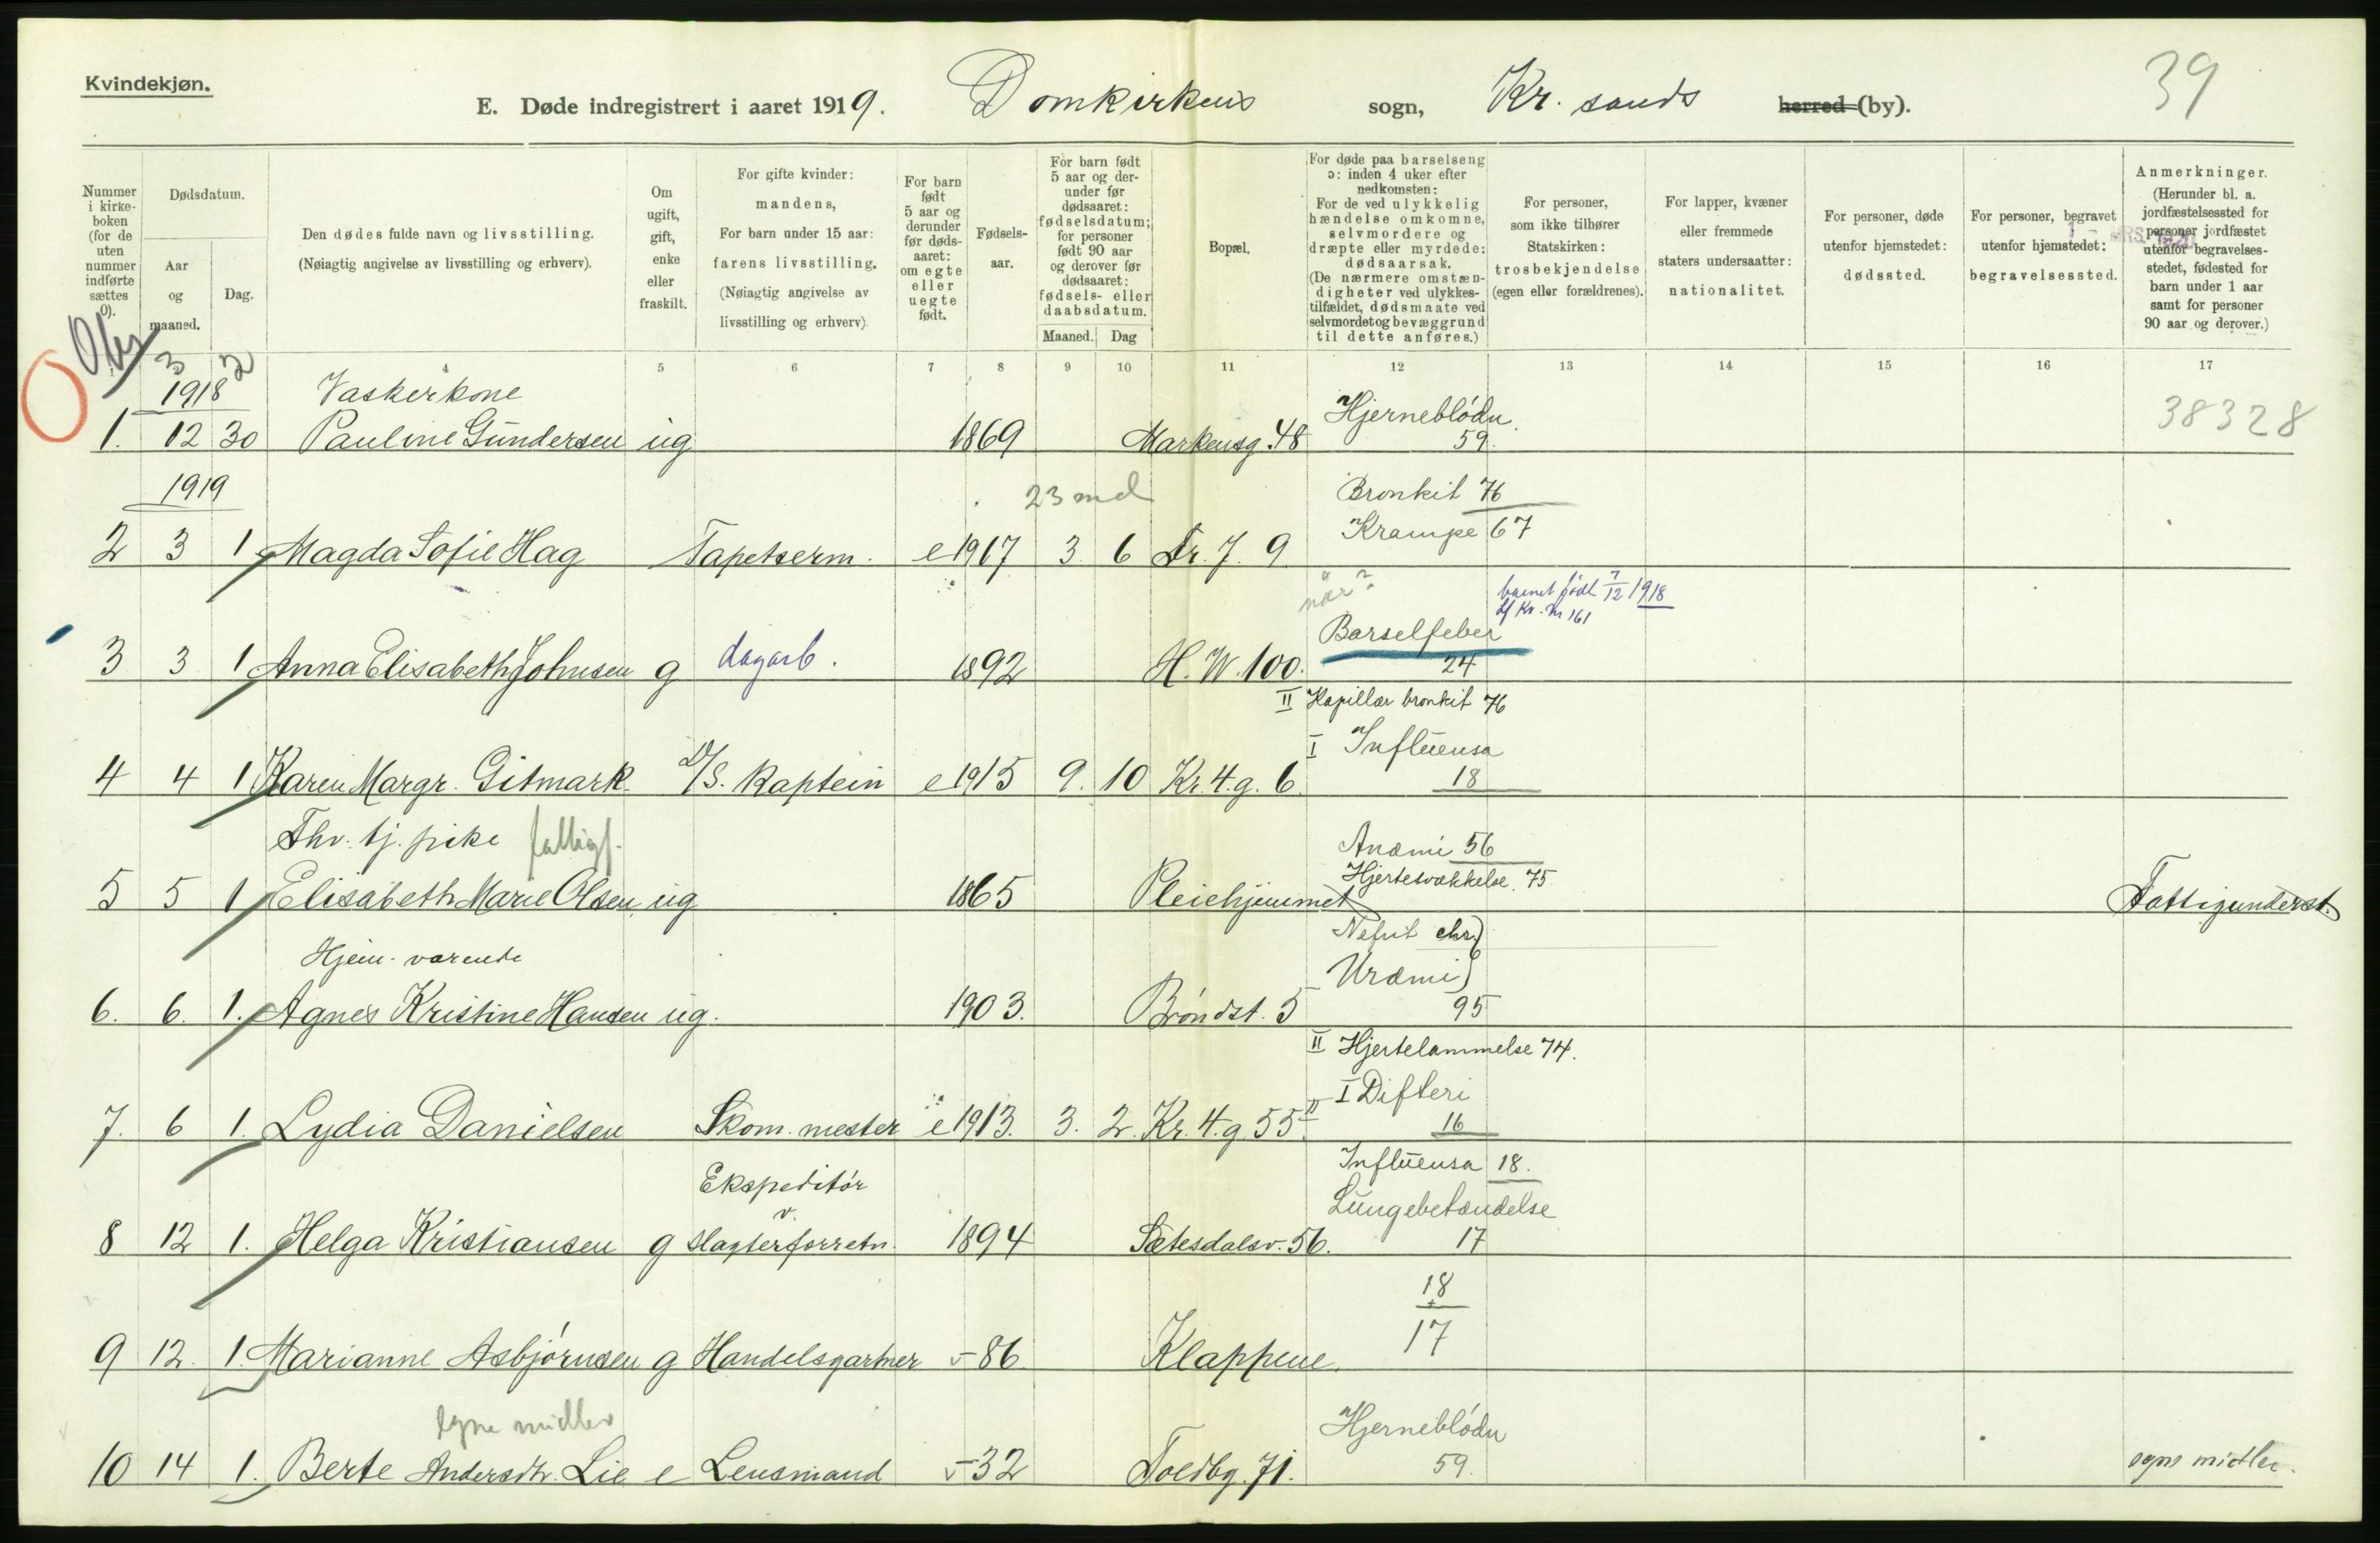 Kvindekjøn.
E. Døde indregistrert i aaret 1919. Domkirkens sogn, Kr. sands herred (by).
39
Nummer i kirkeboken (for de uten nummer indførte sættes 0).
Dødsdatum.
Aar og maaned.
Dag.
Den dødes fulde navn og livsstilling.
(Nøiagtig angivelse av livsstilling og erhverv).
Om ugift, gift, enke eller fraskilt.
For gifte kvinder: mandens,
For barn under 15 aar: farens livsstilling.
(Nøiagtig angivelse av livsstilling og erhverv)
For barn født 5 aar og derunder før dødsaaret: om egte eller uegte født.
Fødselsaar.
For barn født 5 aar og derunder før dødsaaret: fødselsdatum; for personer født 90 aar og derover før dødsaaret: fødsels- eller daabsdatum.
Maaned. Dag
Bopæl.
For døde paa barselseng ɔ: inden 4 uker efter nedkomsten:
For de ved ulykkelig hændelse omkomne, selvmordere og dræpte eller myrdede: dødsaarsak.
(De nærmere omstændigheter ved ulykkestilfældet, dødsmaate ved selvmordet og bevæggrund til dette anføres.)
For personer, som ikke tilhører Statskirken: trosbekjendelse (egen eller forældrenes).
For lapper, kvæner eller fremmede staters undersaatter: nationalitet.
For personer, døde utenfor hjemstedet: dødssted.
For personer, begravet utenfor hjemstedet: begravelsessted.
Anmerkninger.
(Herunder bl. a. jordfæstelsessted for personer jordfæstet utenfor begravelsesstedet, fødested for barn under 1 aar samt for personer 90 aar og derover.)
3 2 4 5 6 7 8 9 10 11 12 13 14 15 16 17
1918 Vaskerkone Hjerneblödn. 38328
1. 12 30 Pauline Gundersen ug 1869 Markensg. 48 59.
1919 23 md Bronkit 76
Krampe 67
2 3 1 Magda Sofie Hag Tapetserm. e 1917 3. 6 Dr. 7. 9
når? barnet født 7/12 1918
Kr. Nr 161
Barselfeber
3 3 1 Anna Elisabeth Johnsen g dagarb. 1892 H. W. 100. 24
II Kapillær bronkit 76
I Influensa
4 4 1 Karen Margr. Gitmark D/S. kaptein e 1915 9. 10 Kr. 4. g. 6. 18
Fhv. tj. pike Anæmi 56
Hjertesvækkelse 75
5 5 1 Elisabeth Marie Olsen ug 1865 Pleiehjemmet Fattigunderst.
Nefrit chr.
Hjem-værende Uræmi
6. 6. 1. Agnes Kristine Hansen ug. 1903. Bröndst. 5 95
II Hjertelammelse 74.
I Difteri
7. 6 1. Lydia Danielsen Skom. mester e 1913. 3. 2. Kr. 4. g 55 II 16
Influensa 18.
Ekspeditör Lungebetændelse
v.
8 12 1. Helga Kristiansen g slagterforretn. 1894 Sætesdalsv. 56. 17
18
+
17
9 12. 1. Marianne Asbjörnsen g Handelsgartner - 86 Klappene.
Egne midler Hjerneblödn
10 14 1. Berte Andersdtr. Lie e Lensmand - 32 Toldbg. 71. 59. egne midler.